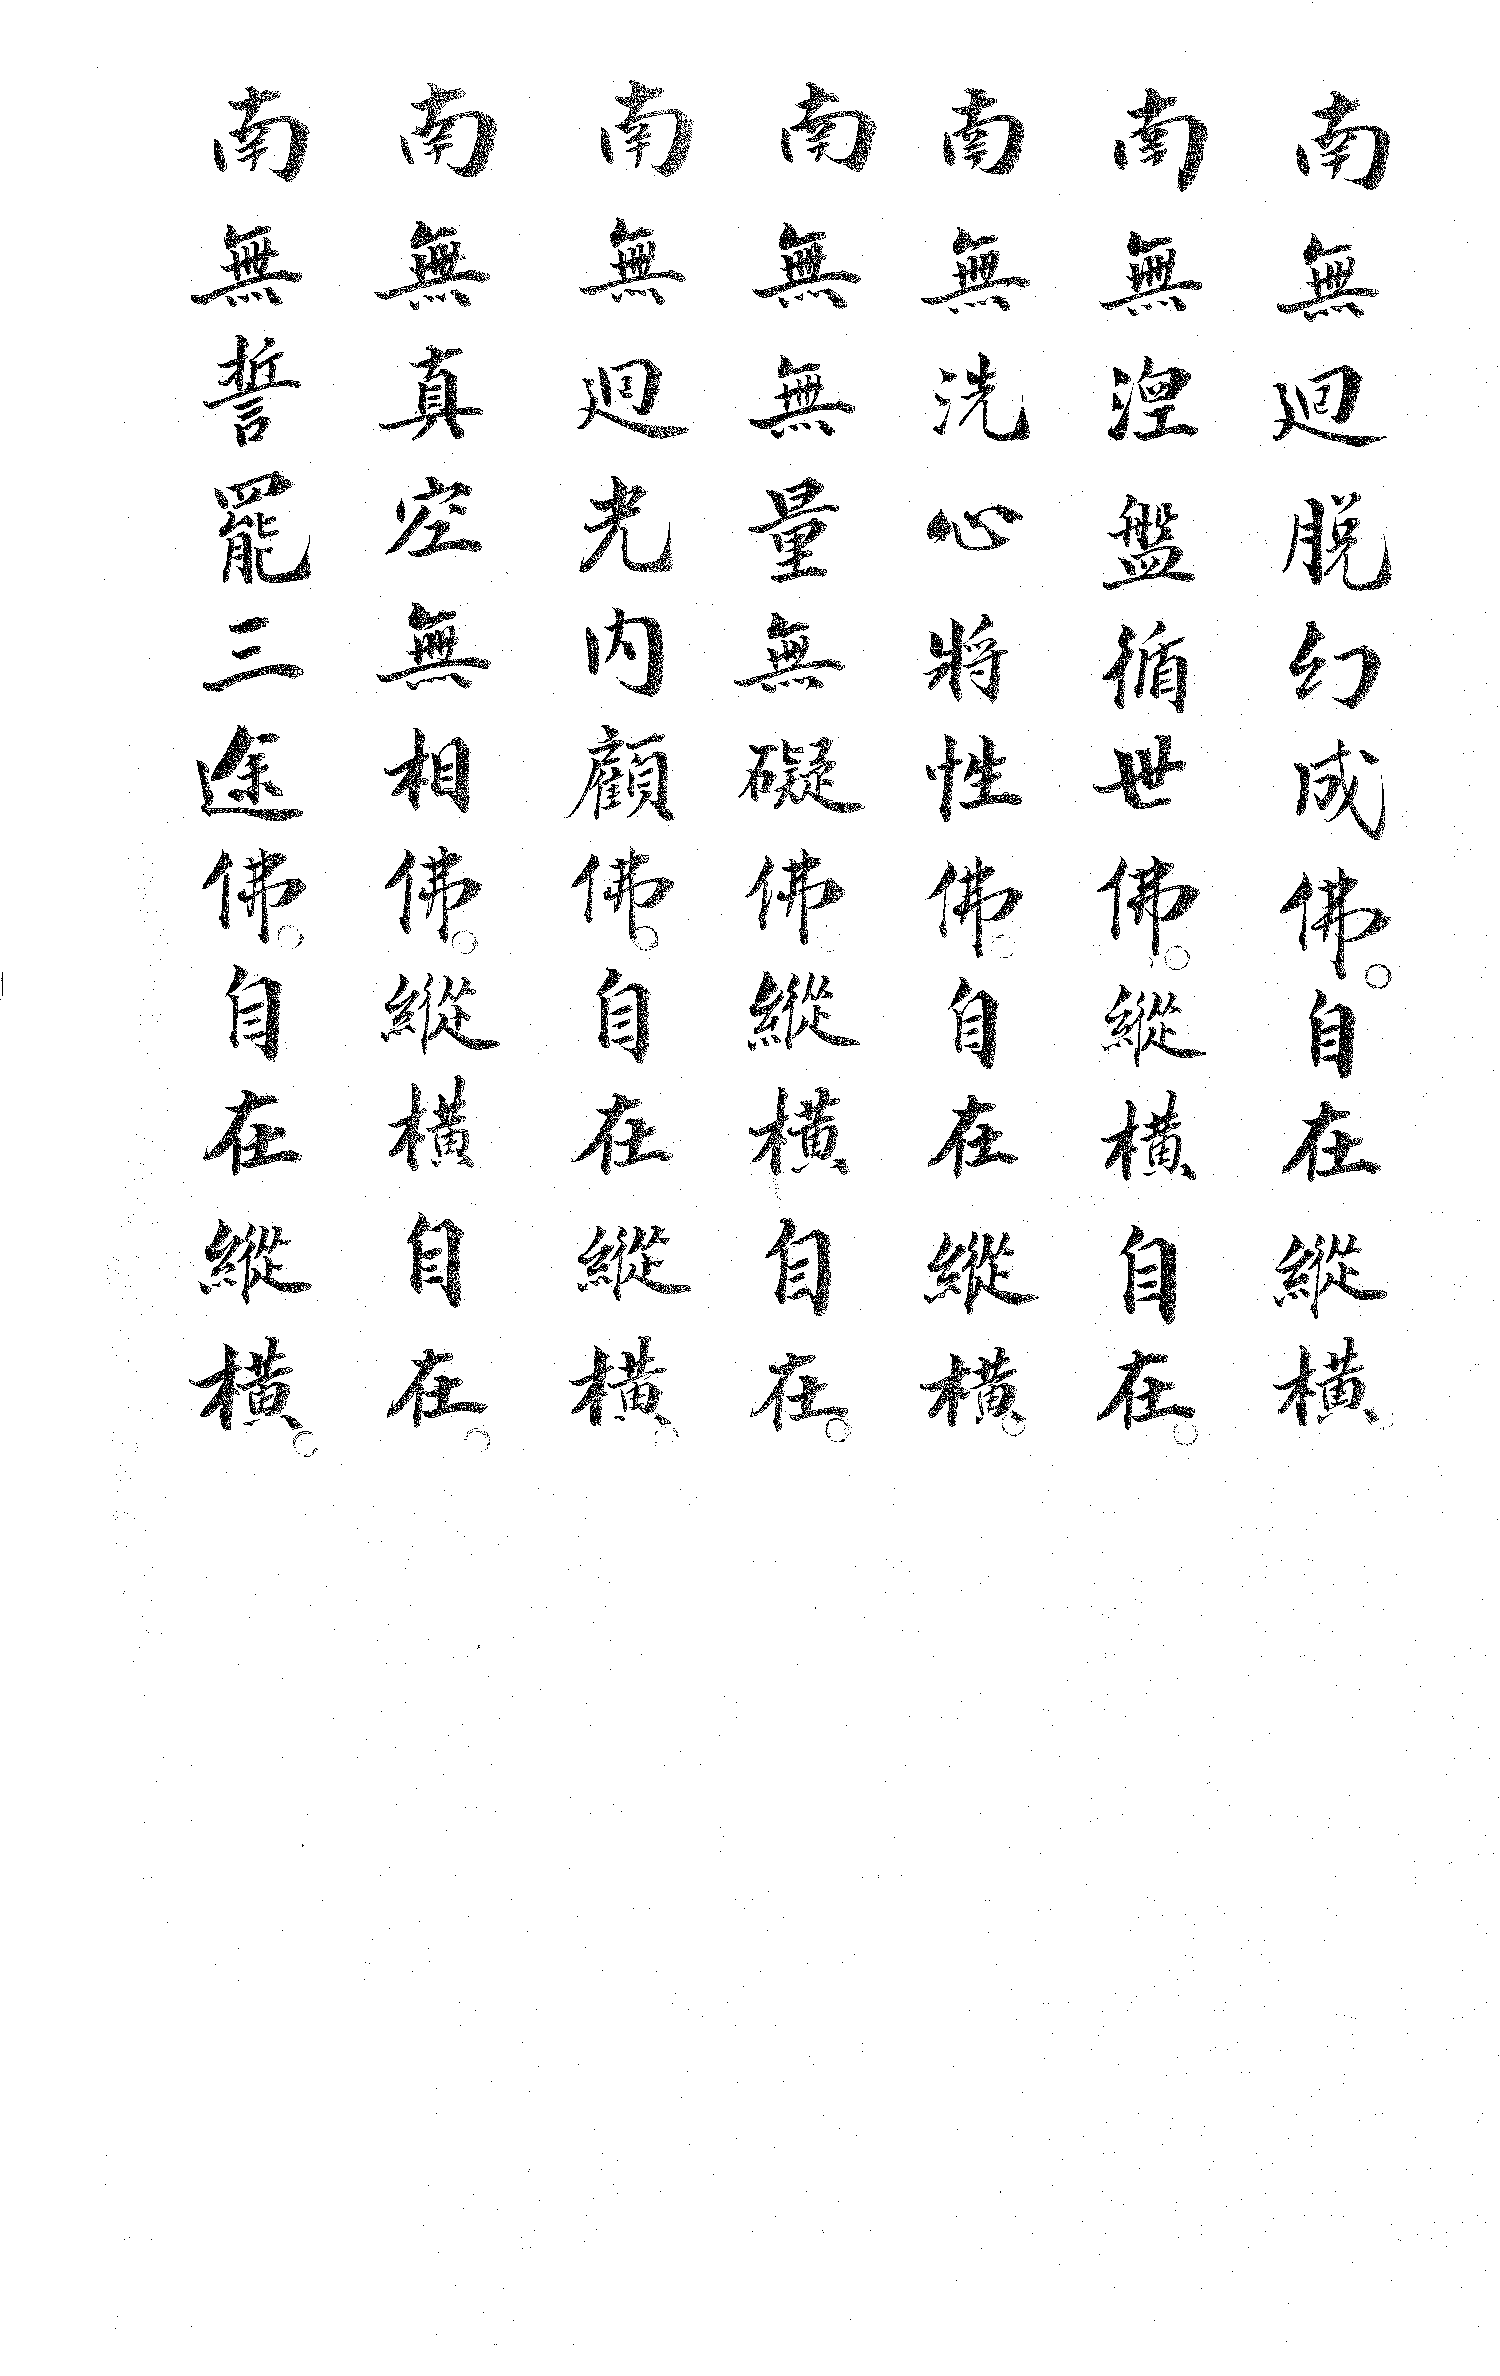 南無迴脫幻成佛。自在縱橫。
南無涅盤循世佛。縱橫自在。
南無洗心將性佛。自在縱橫。
南無無量無礙佛。縱橫自在。
南無迴光内顧佛。自在縱橫。
南無真空無相佛。縱橫自在。
南無誓罷三途佛。自在縱橫。